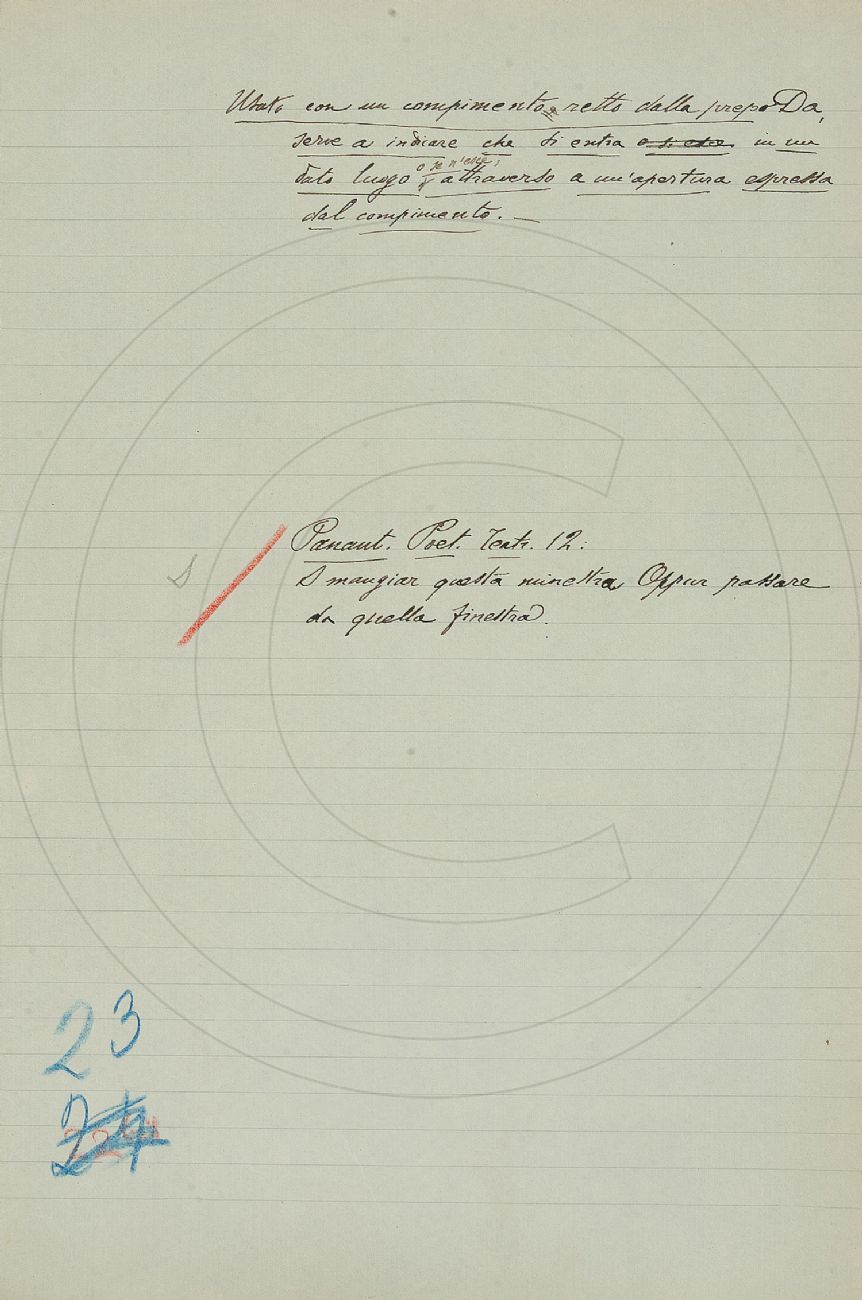 Usato con un compimento retto dalla prepo Da,
serve a indicare che si entra o si esce in un
o se n'esce,
dato luogo attraverso a un'apertura espressa
dal compimento. —
Panant. Poet. Teatr. 12:
S mangiar questa minestra Oppur passare
da quella finestra.
S
23
24